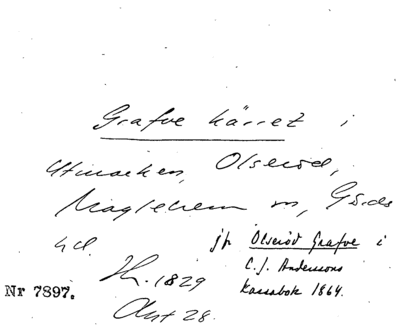 Grafve kärret i
Utmarken, Olseröd,
Maglehem sn, Gärds
hd.
jfr Olseröd Grafve i
C. J. Anderssons
Kassabok 1864.
Sk. 1829
Akt 28.
Nr 7897.